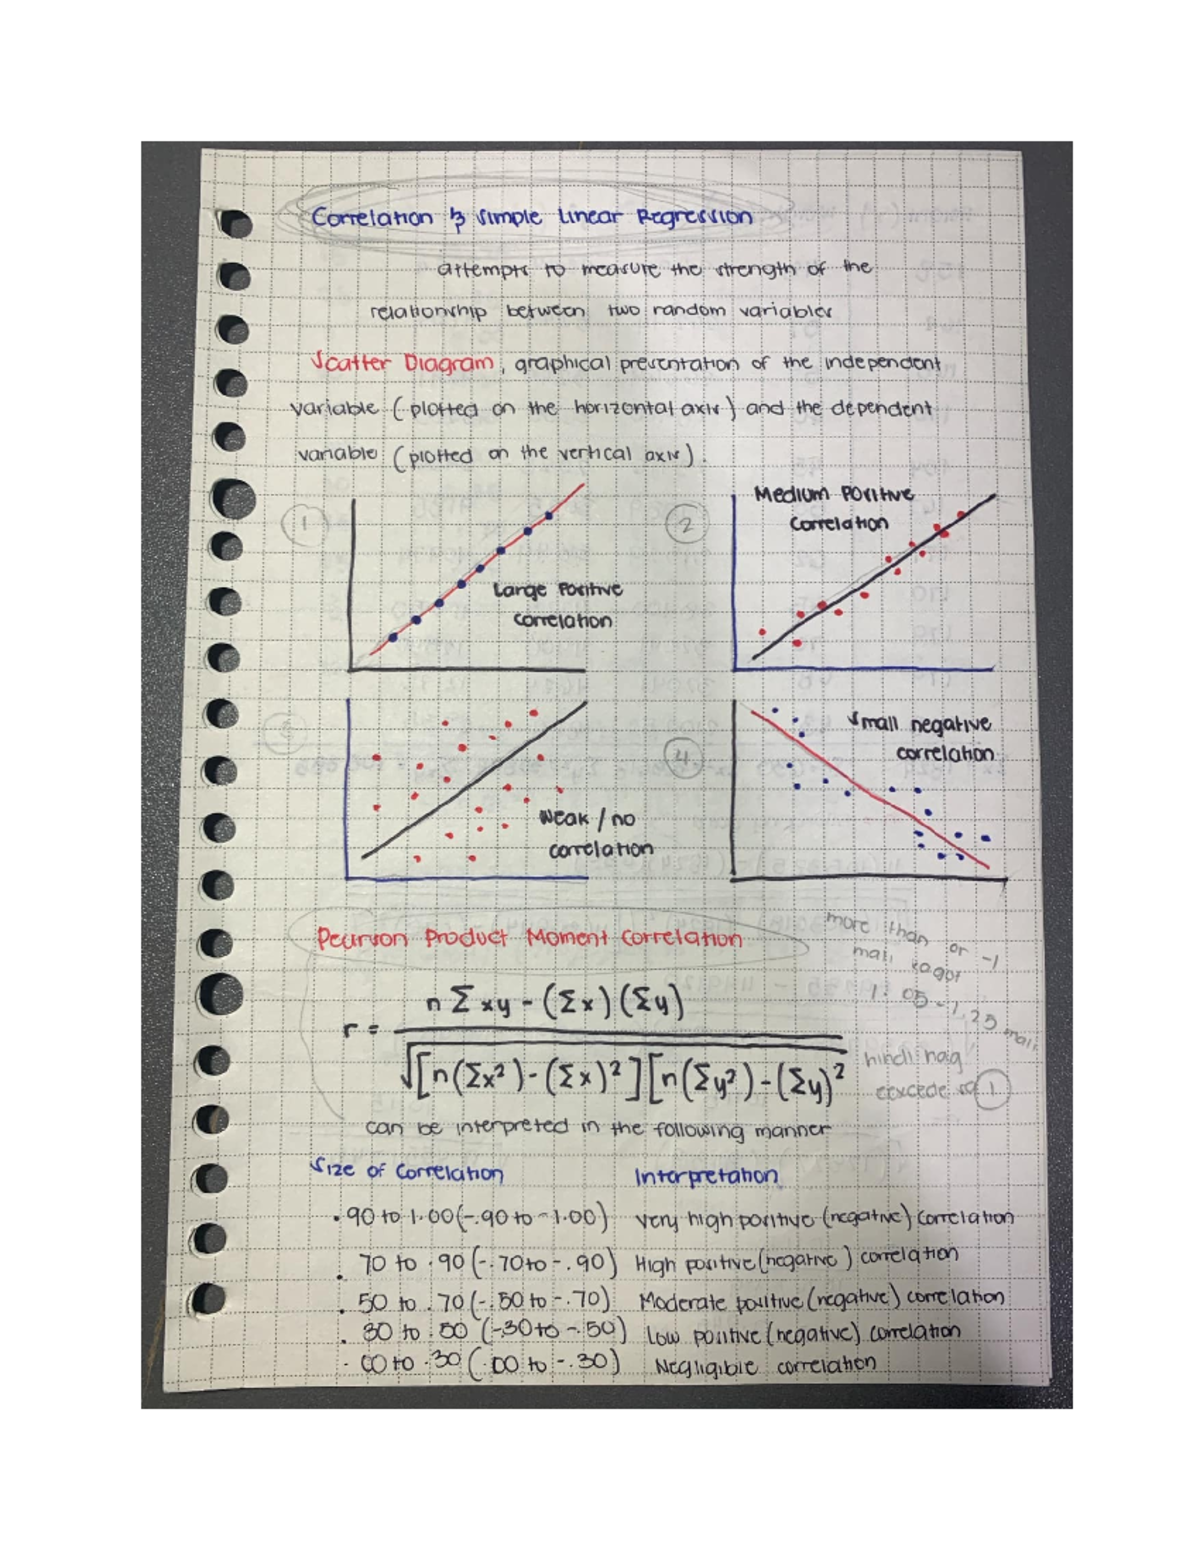 Correlation & Simple Linear Regression
attempts to measure the strength of the
relationship between two random variables
Scatter Diagram, graphical presentation of the independent
variable (plotted on the horizontal axis) and the dependent
variable (plotted on the vertical axis).
1
Large Positive
correlation
2
Medium Positive
Correlation
3
Weak / no
correlation
4
Small negative
correlation
Pearson Product Moment Correlation
more than or -1
mali sagot
1.05 - 1.25 mali
hindi nag
eexcede sa 1
r = n Σxy - (Σx)(Σy)
√[n(Σx²)-(Σx)²][n(Σy²)-(Σy)²
can be interpreted in the following manner
Size of Correlation Interpretation
.90 to 1.00 (-.90 to -1.00) very high positive (negative) correlation
.70 to .90 (-.70 to -.90) High positive (negative) correlation
.50 to .70 (-.50 to -.70) Moderate positive (negative) correlation
.30 to .50 (-30 to -.50) Low positive (negative) correlation
.00 to .30 (.00 to -.30) Negligible correlation